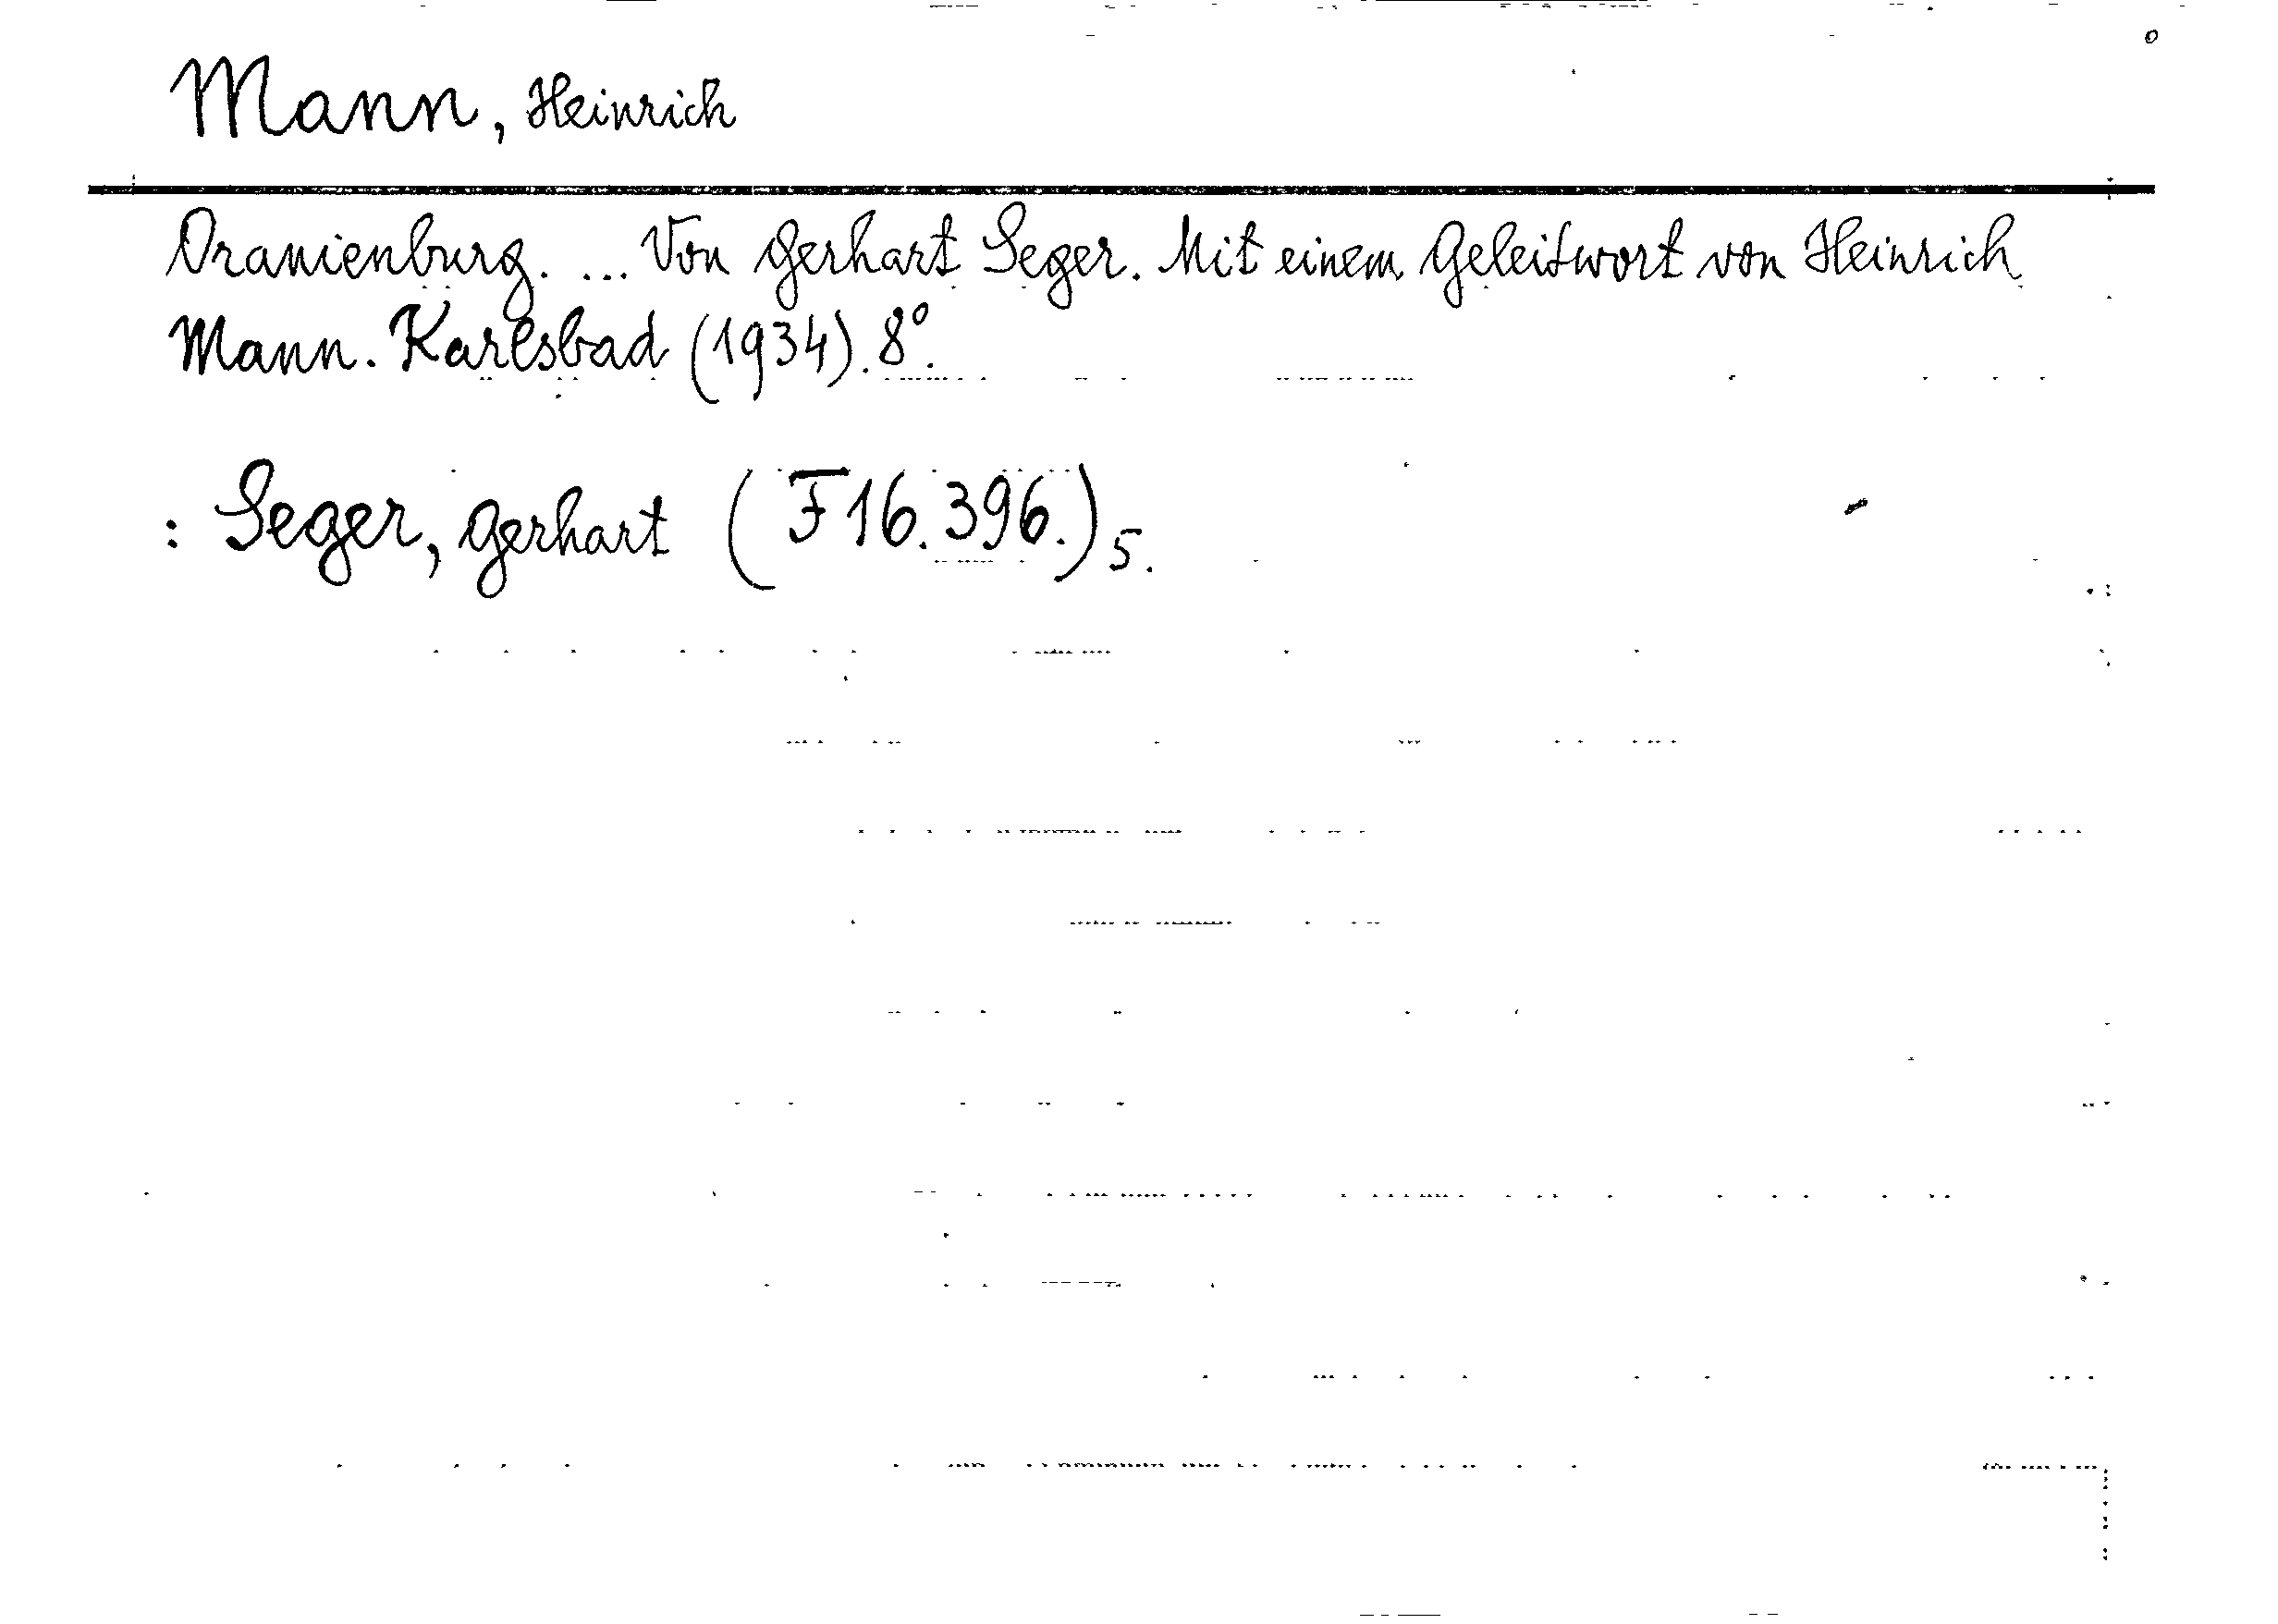 Mann, Heinrich
Oranienburg. ... Von Gerhart Seger. Mit einem Geleitwort von Heinrich
Mann. Karlsbad (1934). 8°.
: Seger, Gerhart (F16.396.) 5.